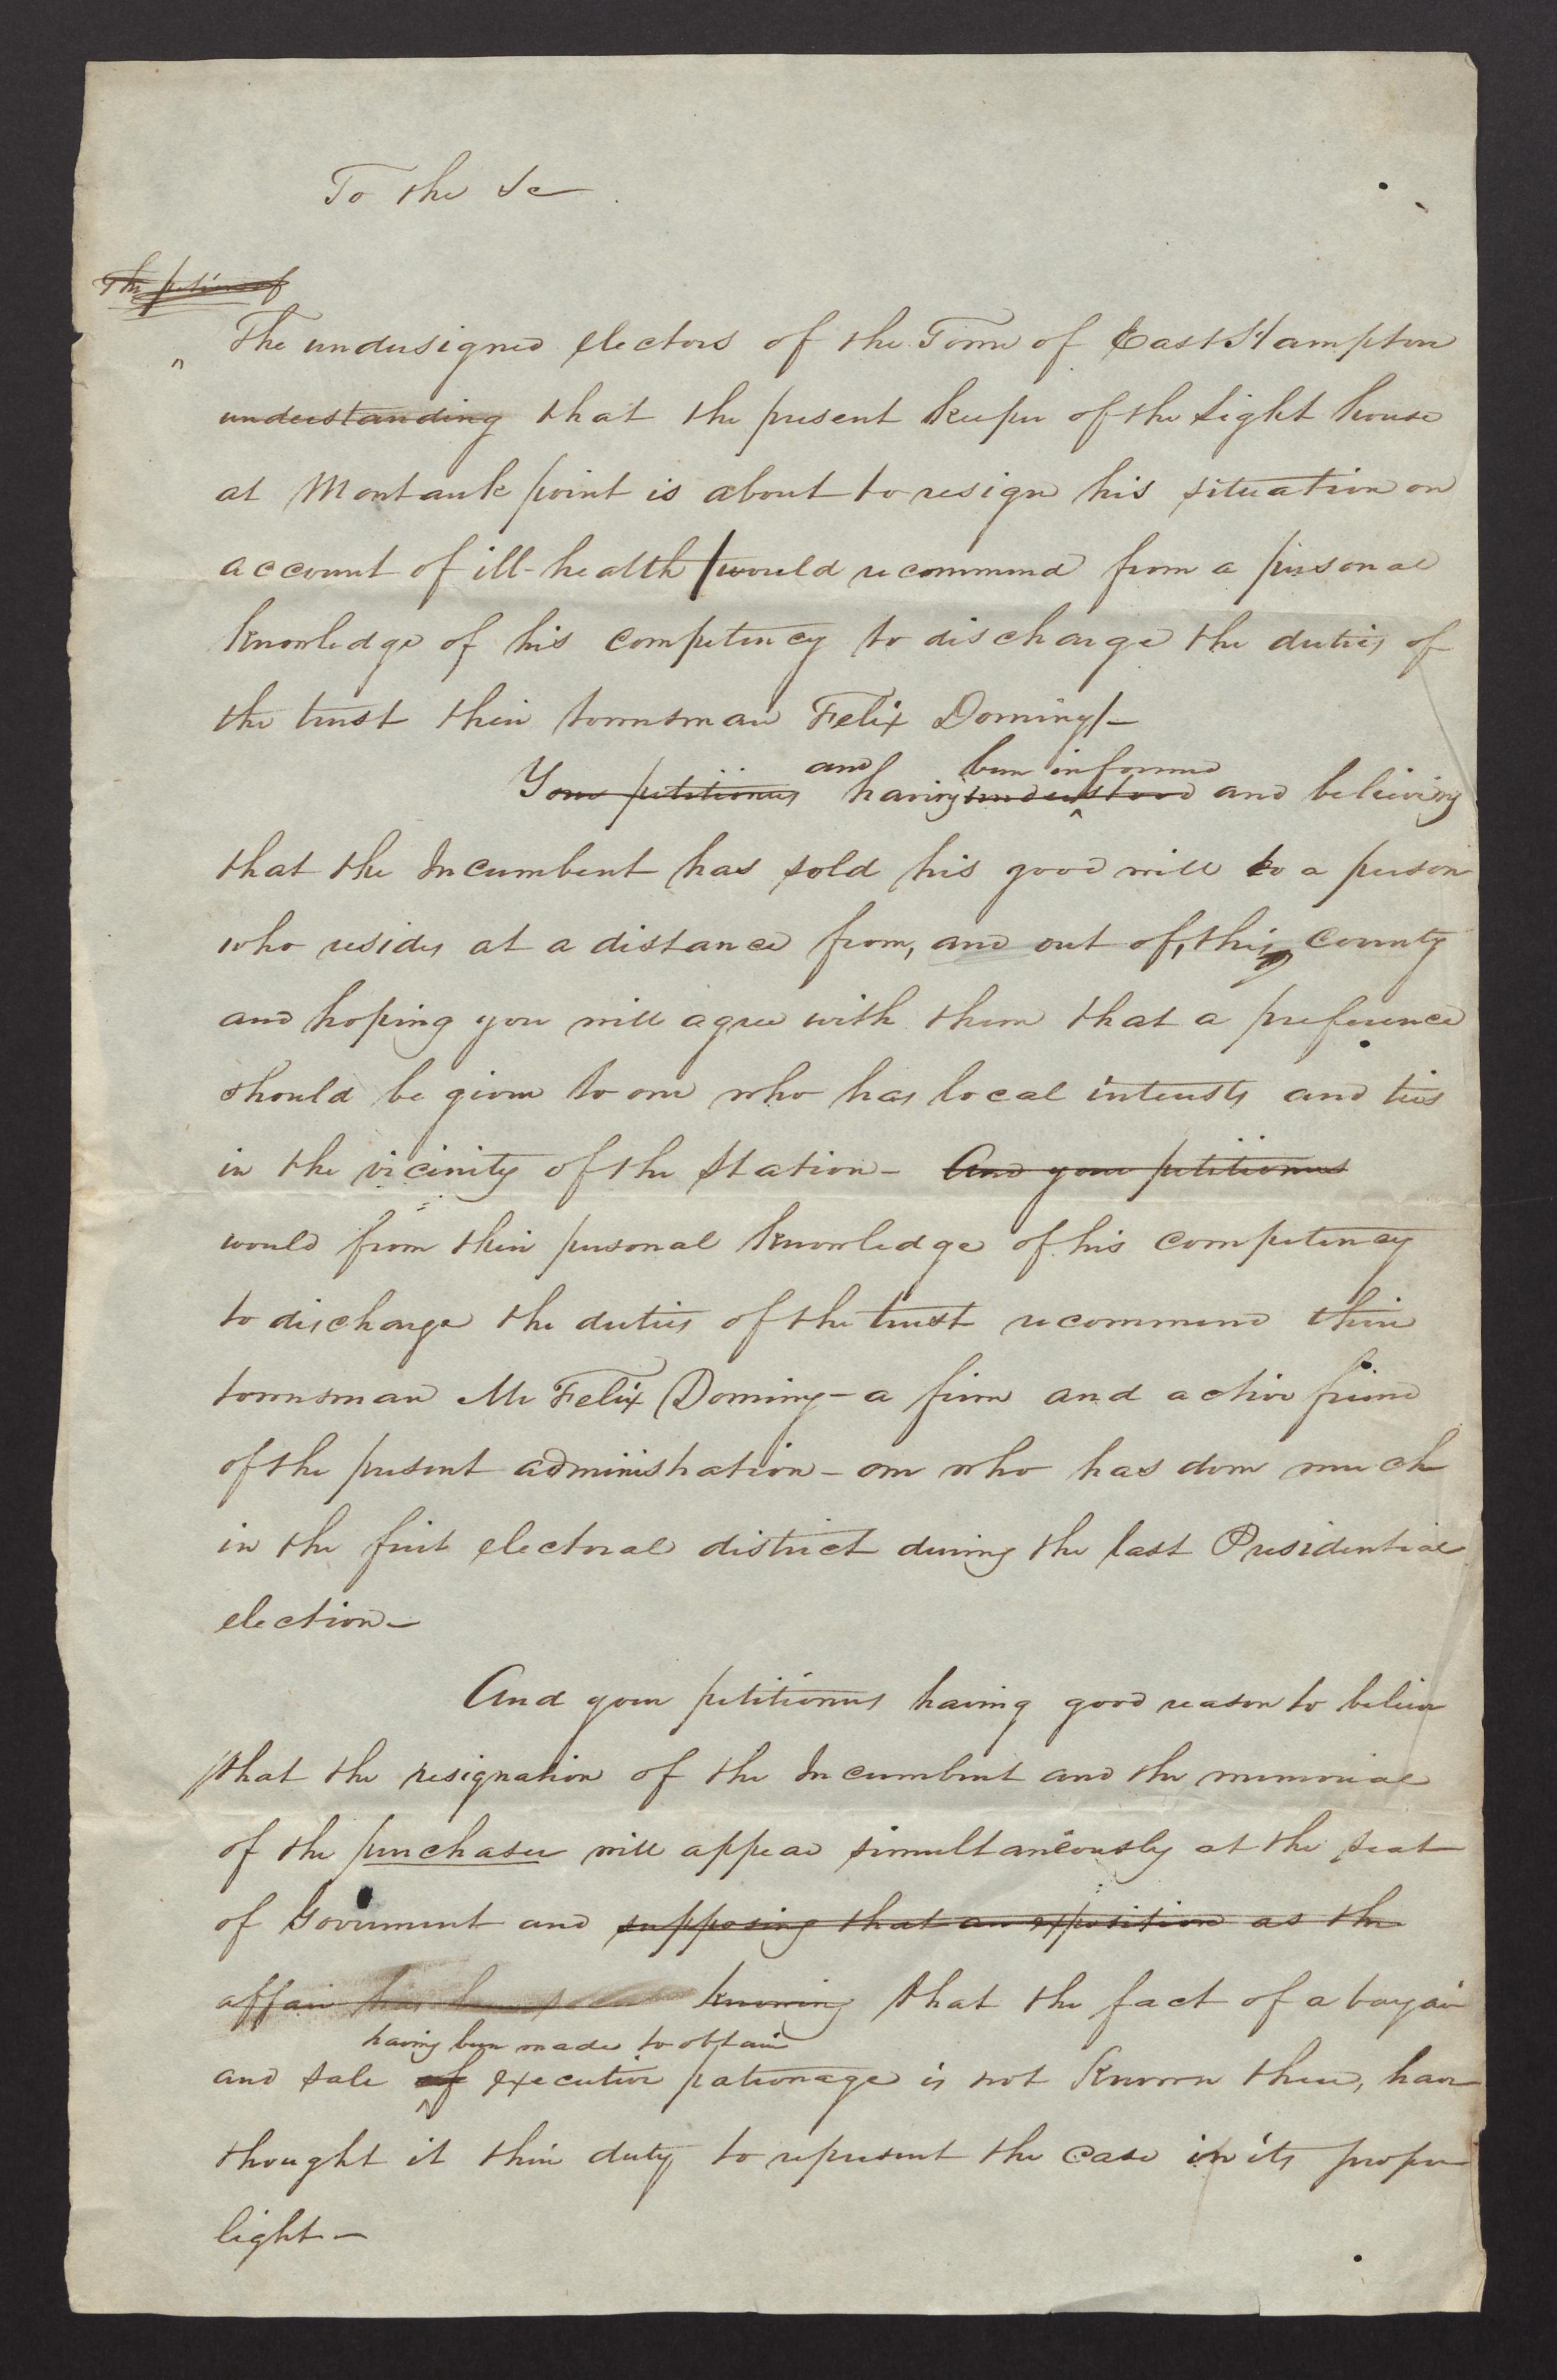 To the Se
The petition of
The undersigned electors of the Town of East Hampton
understanding that the present keeper of the Light house
at Montauk point is about to resign his situation on
account of ill-health would recommend from a personal
knowledge of his competency to discharge the duties of
the trust their townsman Felix Dominy/-
and been informed
Your petitioners having understood and believing
that the Incumbent has sold his good will to a person
who resides at a distance from, and out of, this County
and hoping you will agree with them that a preference
should be given to one who has local interests and ties
in the vicinity of the Station- And your petitioners
would from their personal knowledge of his competency
to discharge the duties of the trust recommend their
townsman Mr Felix Dominy - a firm and active friend
of the present administration - one who has done much
in the first electoral district during the last Presidential
election-
And your petitioners having good reason to believe
that the resignation of the Incumbent and the memorial
of the purchaser will appear simultaneously at the seat
of Government and supposing that an exposition as the
affair has been knowing that the fact of a bargain
having been made to obtain
and sale of executive patronage is not known there, have
thought it their duty to represent the case in its proper
light-